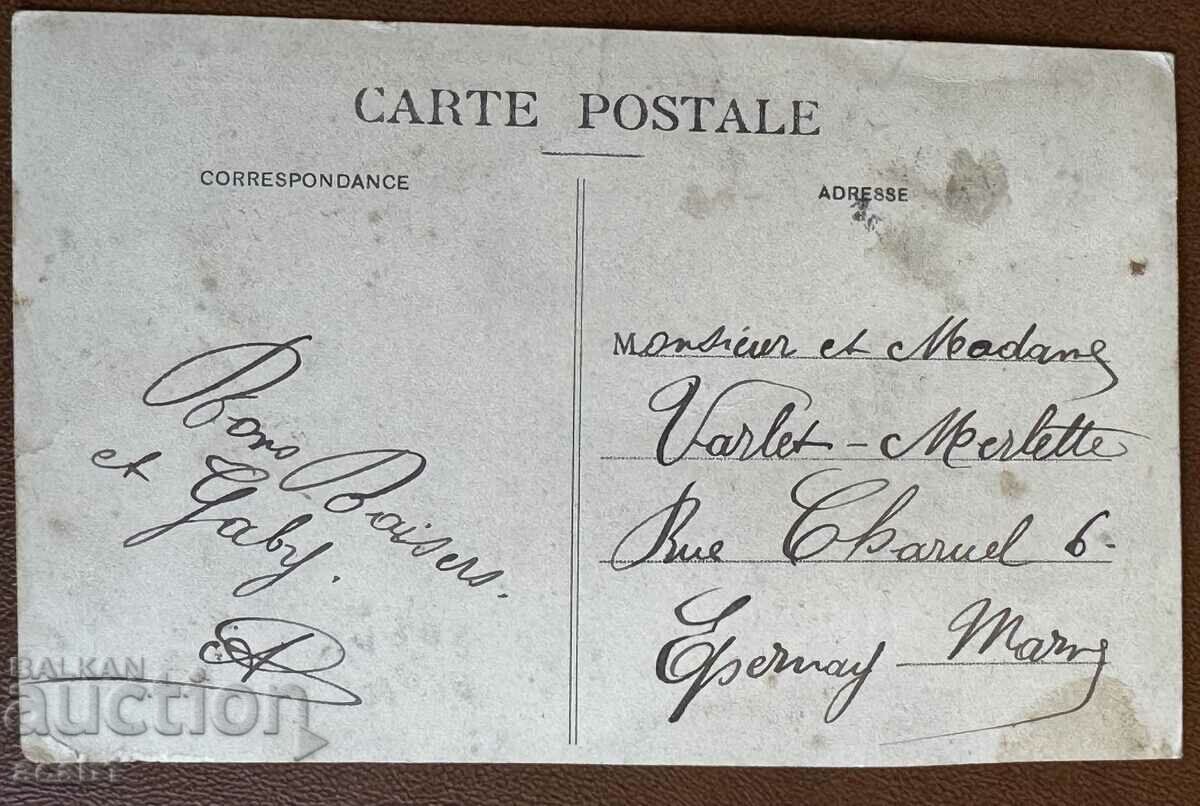 CARTE POSTALE
CORRESPONDANCE
Bons Baisers.
et Gaby.
ADRESSE
Monsieur et Madame
Varlet-Merlette
Rue Charuel 6-
Epernay - Marne
BALKAN
auction